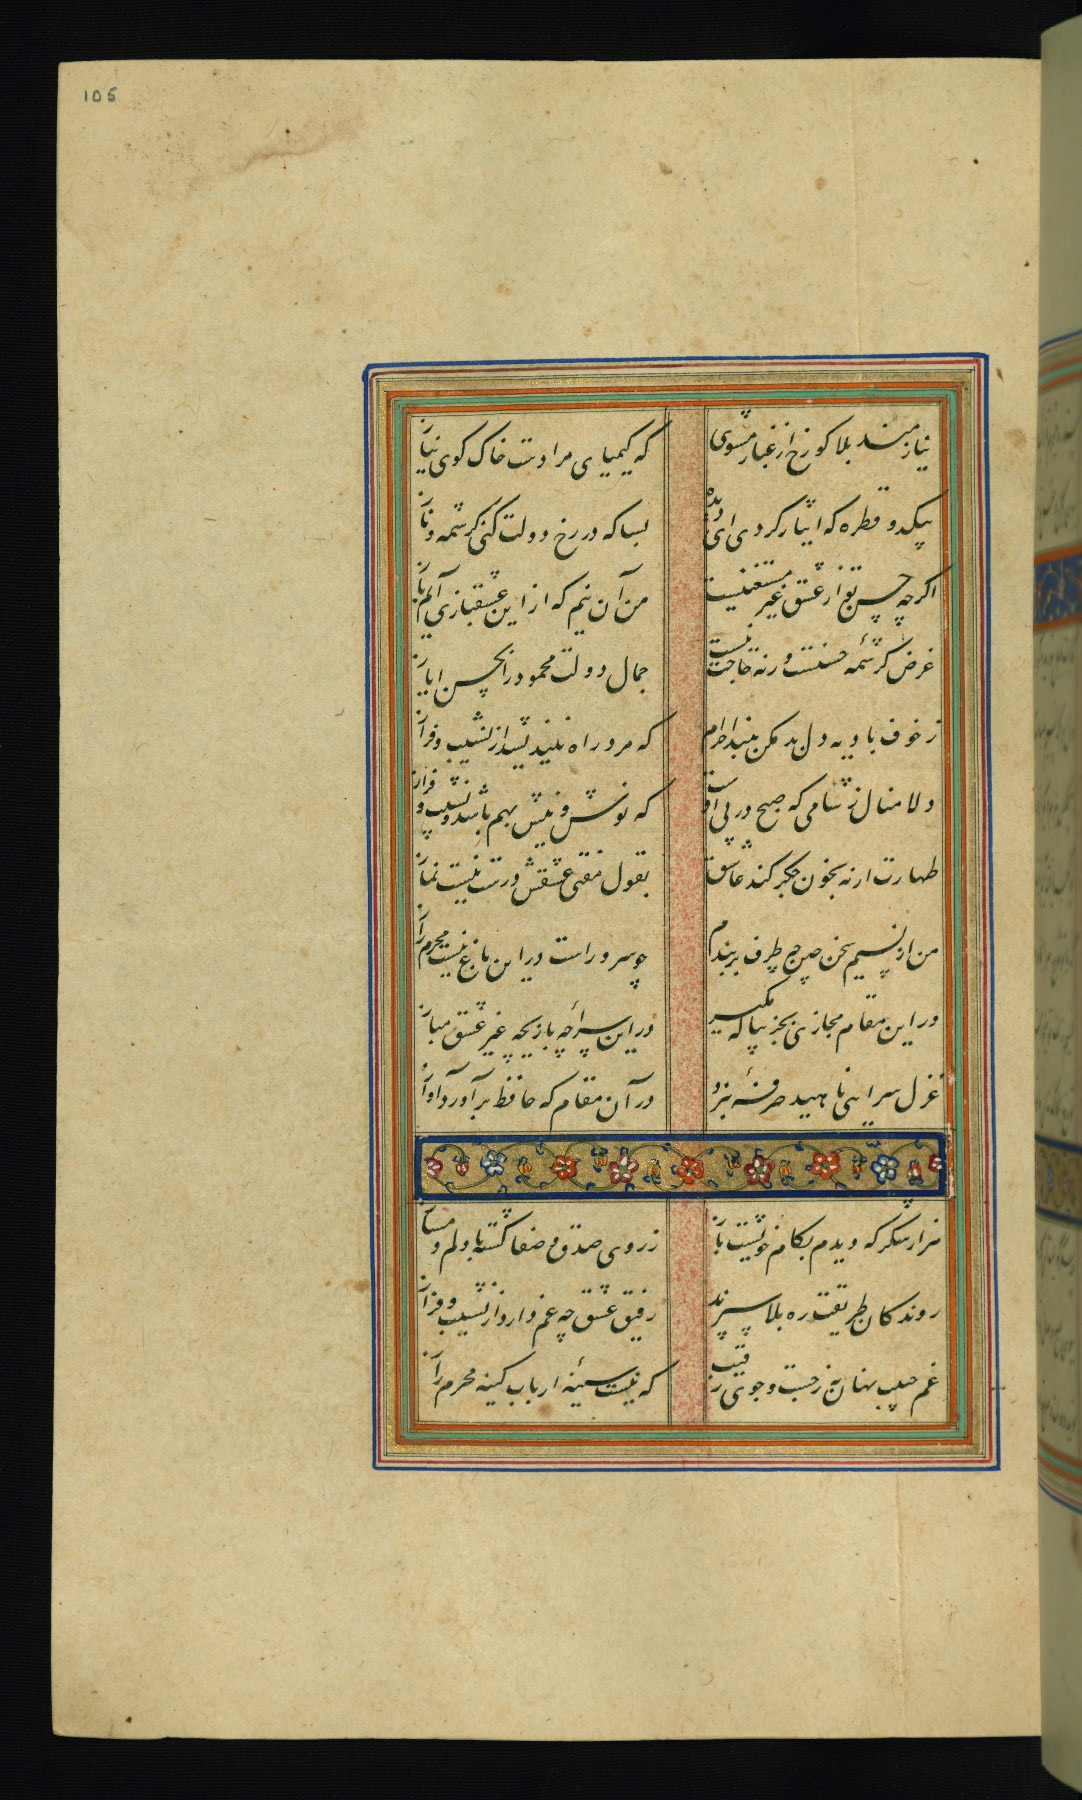 ۱۵۶
نیازمند بلا کو رخ از غبار مشوی که کیمیای مرادست خاک کوی نیاز
بیکدو قطره که ایثار کردی ای دیده بسا که در رخ دولت کنی کرشمه و ناز
اکرچه حسن تو از عشق غیر مستغنیست من آن نیم که از این عشقبازی آیم باز
غرض کرشمه حسنست ورنه حاجت نیست جمال دولت محمود را بحسن ایاز
ز خوف بادیه دل بد مکن ببند احرام که مرد راه نیندیشد از نشیب و فراز
دلا منال ز شامی که صبح در پی اوست که نوش و نیش بهم باشد و نشیب و فراز
طهارت ار نه بخون جکر کند عاشق بقول مفتی عشقش درست نیست نماز
من از نسیم سخن چین چه طرف بربندم چو سرو راست در این باغ نیست محرم راز
در این مقام مجازی بجز پیاله مکیر در این سراچه بازیچه غیر عشق مباز
غزل سرایی ناهید صرفهٔ نبرد در آن مقام که حافظ برآورد آواز
هزار شکر که دیدم بکام خویشت باز ز روی صدق و صفا کشته با دلم دمساز
روندکان طریقت ره بلا سپرند رفیق عشق چه غم دارد از نشیب و فراز
غم حبیب نهان به ز جست و جوی رقیب که نیست سینهٔ ارباب کینه محرم راز